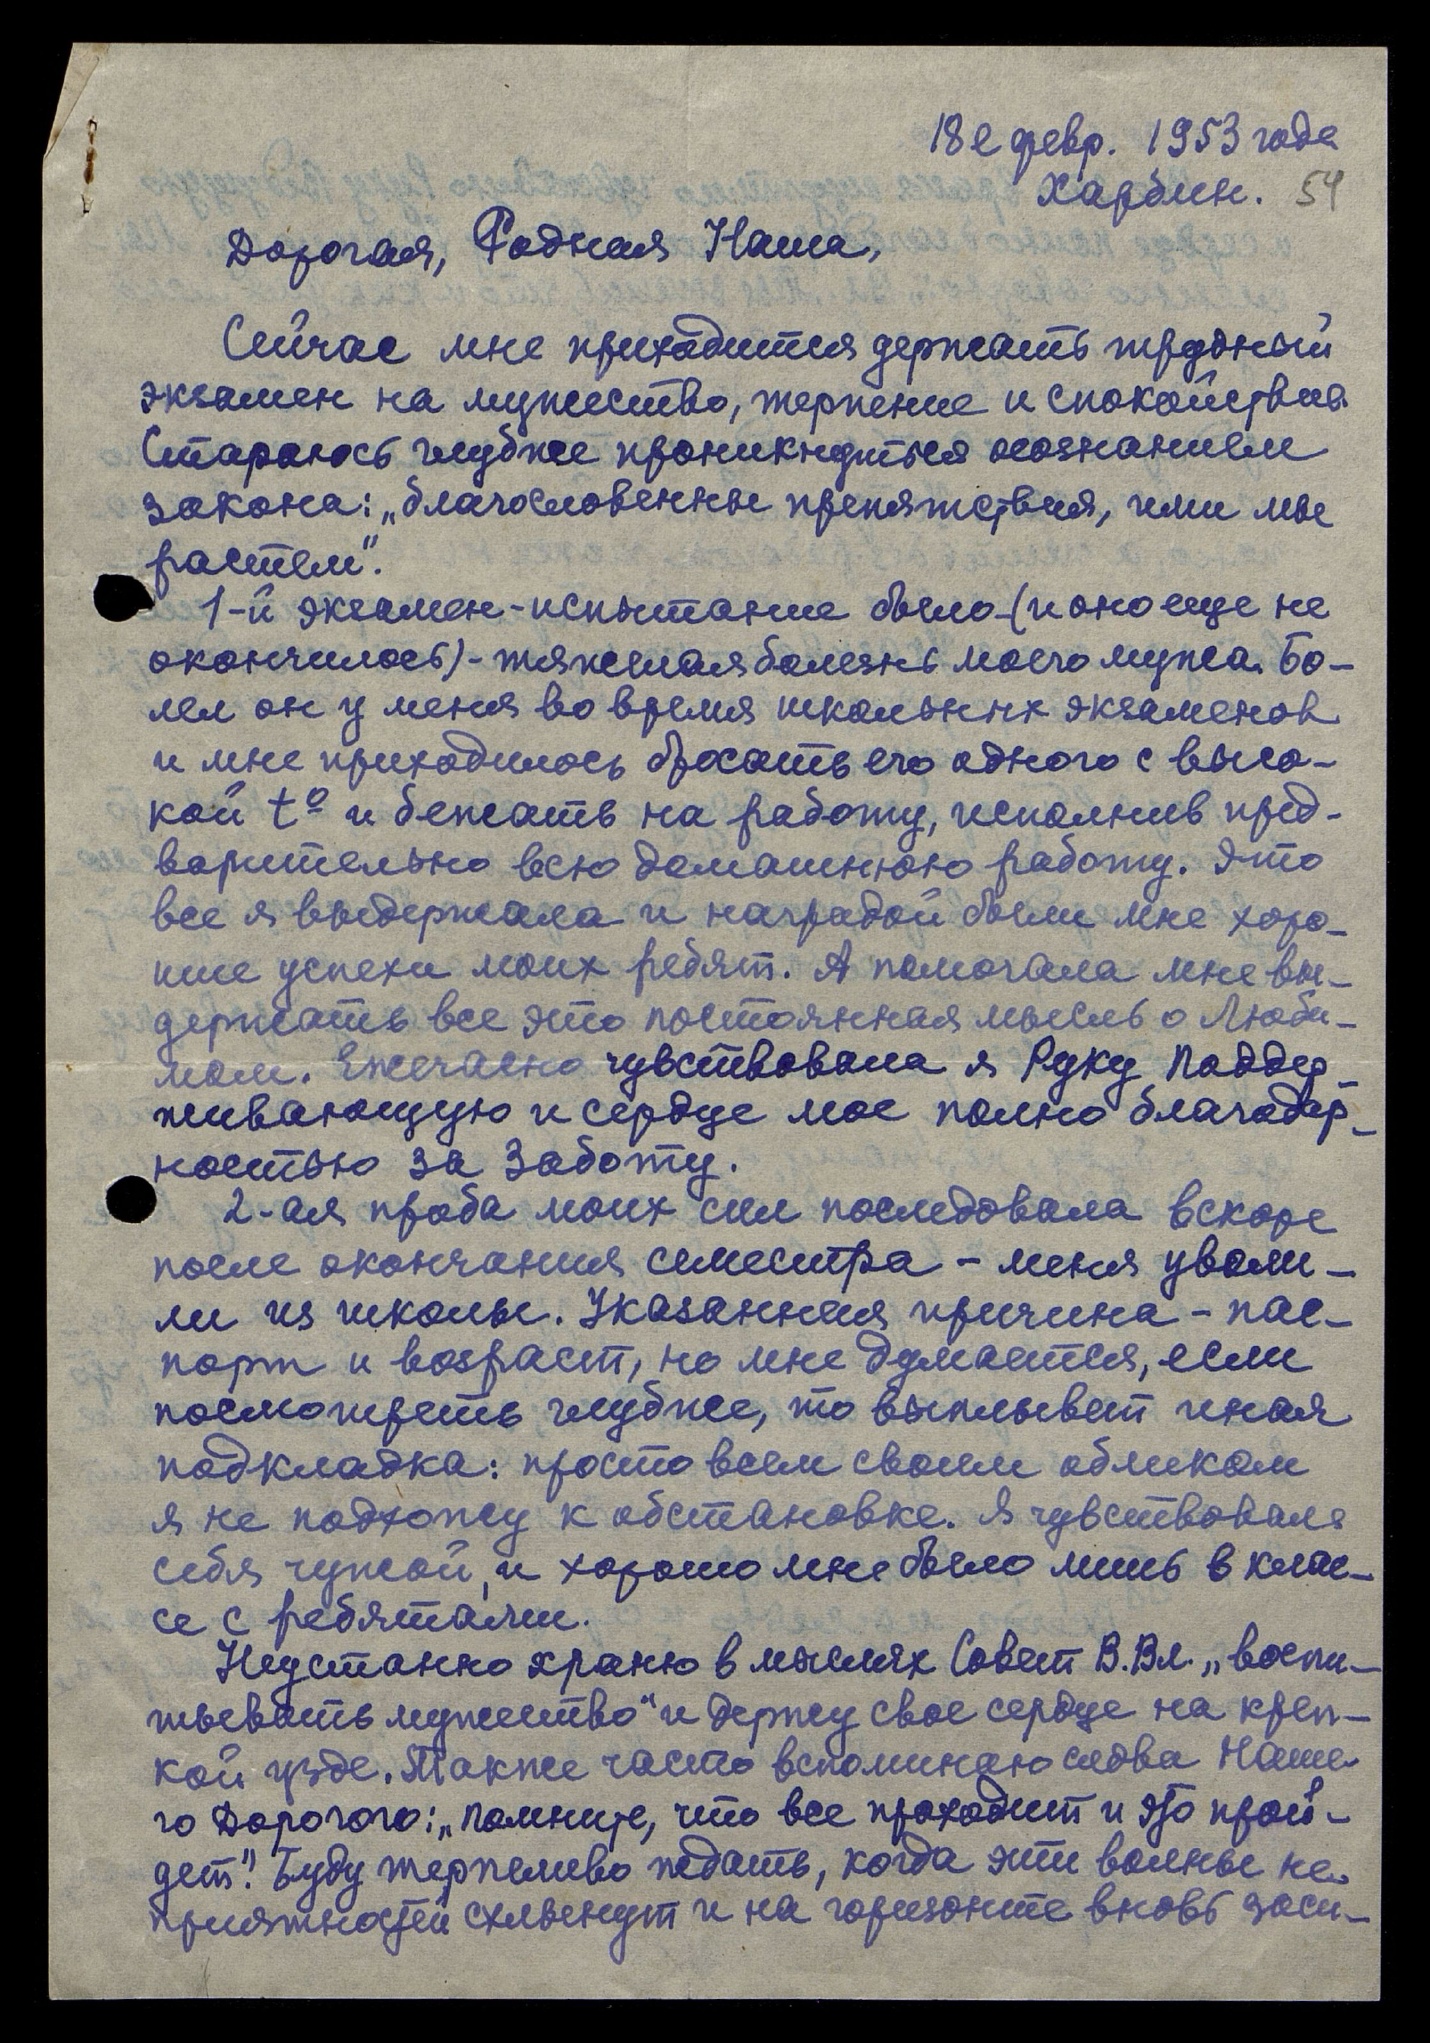 18е февр. 1953 года
Харбин. 54
Дорогая, Родная Наша,
Сейчас мне приходится держать трудный
экзамен на мужество, терпение и спокойствие.
Стараюсь глубже проникнуться осознанием
закона: „благословенны препятствия, ими мы
растем“.
1-й экзамен-испытание было-(и оно еще не
окончилось)-тяжелая болезнь моего мужа. Бо-
лел он у меня во время школьных экзаменов
и мне приходилось бросать его одного с высо-
кой t° и бежать на работу, исполнив пред-
варительно всю домашнюю работу. Это
все я выдержала и наградой были мне хоро-
шие успехи моих ребят. А помогала мне вы-
держать все это постоянная мысль о Люби-
мом. Ежечасно чувствовала я Руку Поддер-
живающую и сердце мое полно благодар-
ностью за Заботу.
2-ая проба моих сил последовала вскоре
после окончания семестра - меня уволи-
ли из школы. Указанная причина - пас-
порт и возраст, но мне думается, если
посмотреть глубже, то выплывет иная
подкладка: просто всем своим обликом
я не подхожу к обстановке. Я чувствовала
себя чужой, и хорошо мне было лишь в клас-
се с ребятами.
Неустанно храню в мыслях Совет В.Вл. „воспи-
тывать мужество“ и держу свое сердце на креп-
кой узде. Также часто вспоминаю слова Наше-
го Дорогого: „Помните, что все проходит и это прой-
дет“. Буду терпеливо ждать, когда эти волны не-
приятностей схлынут и на горизонте вновь заси-